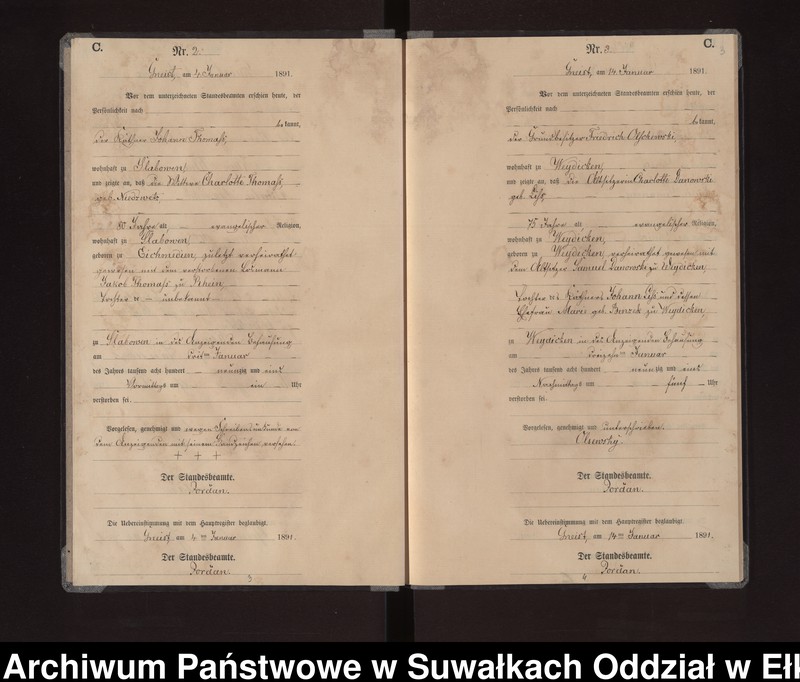 C.
Nr. 2.
Gneist, am 4. Januar 1891.
Vor dem unterzeichneten Standesbeamten erschien heute, der
Persönlichkeit nach
bekannt,
der Käthner Johann Thomaß,
wohnhaft zu Slabowen,
und zeigte an, daß die Wittwe Charlotte Thomaß,
geb.
80 Jahre alt, evangelischer Religion,
wohnhaft zu Slabowen,
geboren zu Eichmedien, zuletzt verheirathet
gewesen mit dem verstorbenen Losmann
Jakob Thomaß zu Rhein,
Tochter de — unbekannt —
zu Slabowen in des Anzeigenden Behausung
am dritten Januar
des Jahres tausend acht hundert neunzig und eins
Vormittags um ein Uhr
verstorben sei.
Vorgelesen, genehmigt und wegen Schreibensunkunde von
dem Anzeigenden mit seinem Handzeichen versehen.
+ + +
Der Standesbeamte.
Jordan.
Die Uebereinstimmung mit dem Hauptregister beglaubigt.
Gneist, am 4ten Januar 1891.
Der Standesbeamte.
Jordan.
C.
Nr. 3.
Gneist, am 14. Januar 1891.
Vor dem unterzeichneten Standesbeamten erschien heute, der
Persönlichkeit nach
bekannt,
der Grundbesitzer Friedrich
wohnhaft zu Weydicken,
und zeigte an, daß die Altsitzerin Charlotte Danowski
geb.
75 Jahre alt, evangelischer Religion,
wohnhaft zu Weydicken,
geboren zu Weydicken, verheirathet gewesen mit
dem Altsitzer Samuel Danowski zu Weydicken,
Tochter des Käthners Johann und dessen
Ehefrau Marie geb. zu Weydicken,
zu Weydicken in des Anzeigenden Behausung
am dreizehnten Januar
des Jahres tausend acht hundert neunzig und eins
Nachmittags um fünf Uhr
verstorben sei.
Vorgelesen, genehmigt und unterschrieben.
Der Standesbeamte.
Jordan.
Die Uebereinstimmung mit dem Hauptregister beglaubigt.
Gneist, am 14ten Januar 1891.
Der Standesbeamte.
Jordan.
Archiwum Państwowe w Suwałkach Oddział w Ełk